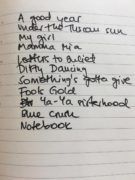 A good year
under the Tuscan sun
My girl
Mamma Mia
Letters to Juliet
Dirty Dancing
Something's gotta give
Fools Gold
Ya-Ya sisterhood
Blue Crush
Notebook